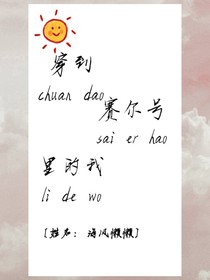 穿到
chuan dao
赛尔号
sai er hao
里的我
li de wo
[姓名：海风懒懒]